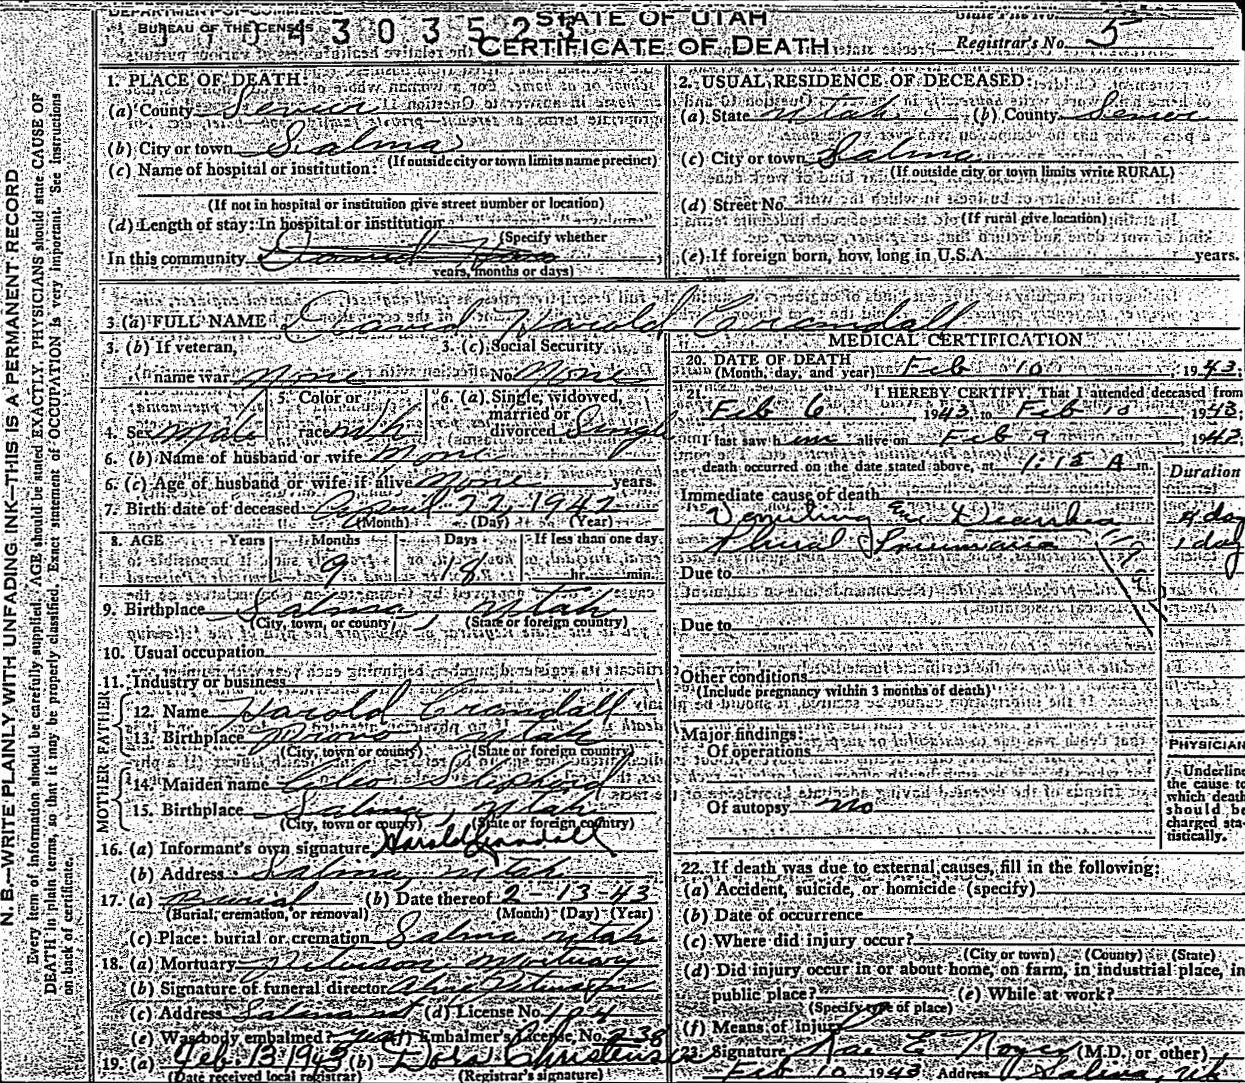 DEPARTMENT OF COMMERCE
BUREAU OF THE CENSUS
4 3 0 3 5 2 3
STATE OF UTAH
CERTIFICATE OF DEATH
State File No.
Registrar's No. 5
N. B.—WRITE PLAINLY WITH UNFADING INK—THIS IS A PERMANENT RECORD
Every item of information should be carefully supplied. AGE should be stated EXACTLY. PHYSICIANS should state CAUSE OF
DEATH in plain terms, so that it may be properly classified. Exact statement of OCCUPATION is very important. See instructions
on back of certificate.
1. PLACE OF DEATH:
(a) County Sevier
(b) City or town Salina
(If outside city or town limits name precinct)
(c) Name of hospital or institution:
(If not in hospital or institution give street number or location)
(d) Length of stay: In hospital or institution
(Specify whether
In this community
years, months or days)
2. USUAL RESIDENCE OF DECEASED:
(a) State Utah (b) County Sevier
(c) City or town Salina
(If outside city or town limits write RURAL)
(d) Street No.
(If rural give location)
(e) If foreign born, how long in U.S.A. years.
3. (a) FULL NAME David Harold Crandall
3. (b) If veteran, 3. (c) Social Security
name war None No. None
4. Sex Male 5. Color or race Wh 6. (a) Single, widowed, married or divorced Single
6. (b) Name of husband or wife None
6. (c) Age of husband or wife if alive None years.
7. Birth date of deceased April 22, 1942
(Month) (Day) (Year)
8. AGE Years Months Days If less than one day
9 18 hr. min.
9. Birthplace Salina, Utah
(City, town, or county) (State or foreign country)
10. Usual occupation
11. Industry or business
FATHER
12. Name Harold Crandall
13. Birthplace Provo Utah
(City, town or county) (State or foreign country)
MOTHER
14. Maiden name Cleo Shepherd
15. Birthplace Salina, Utah
(City, town or county) (State or foreign country)
16. (a) Informant's own signature Harold Crandall
(b) Address Salina, Utah
17. (a) Burial (b) Date thereof 2-13-43
(Burial, cremation, or removal) (Month) (Day) (Year)
(c) Place: burial or cremation Salina Utah
18. (a) Mortuary Mortuary
(b) Signature of funeral director
(c) Address Salina ut (d) License No. 104
(e) Was body embalmed? yes (f) Embalmer's License, No. 238
19. (a) Feb. 13 1943 (b) Dora Christensen
(Date received local registrar) (Registrar's signature)
MEDICAL CERTIFICATION
20. DATE OF DEATH
(Month, day, and year) Feb 10, 1943;
21. I HEREBY CERTIFY That I attended deceased from
Feb 6 1943 to Feb 10 1943;
I last saw him alive on Feb 9, 1942;
death occurred on the date stated above, at 1:15 A m.
Duration
Immediate cause of death
Vomiting Diarrhea 4 day
Plural Pneumonia 1 day
Due to
Due to
Other conditions
(Include pregnancy within 3 months of death)
Major findings:
Of operations
Of autopsy no
PHYSICIAN
Underline
the cause to
which death
should be
charged sta-
tistically.
22. If death was due to external causes, fill in the following:
(a) Accident, suicide, or homicide (specify)
(b) Date of occurrence
(c) Where did injury occur?
(City or town) (County) (State)
(d) Did injury occur in or about home, on farm, in industrial place, in
public place? (e) While at work?
(Specify type of place)
(f) Means of injury
23. Signature Rae E Noyes (M.D. or other)
Feb 10 1943 Address Salina, Ut